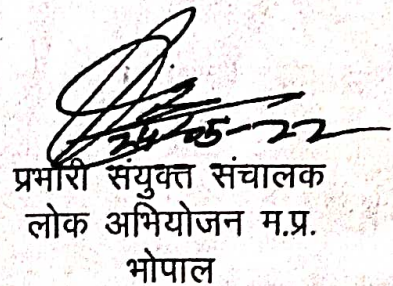 24-05-22
प्रभारी संयुक्त संचालक
लोक अभियोजन म.प्र.
भोपाल